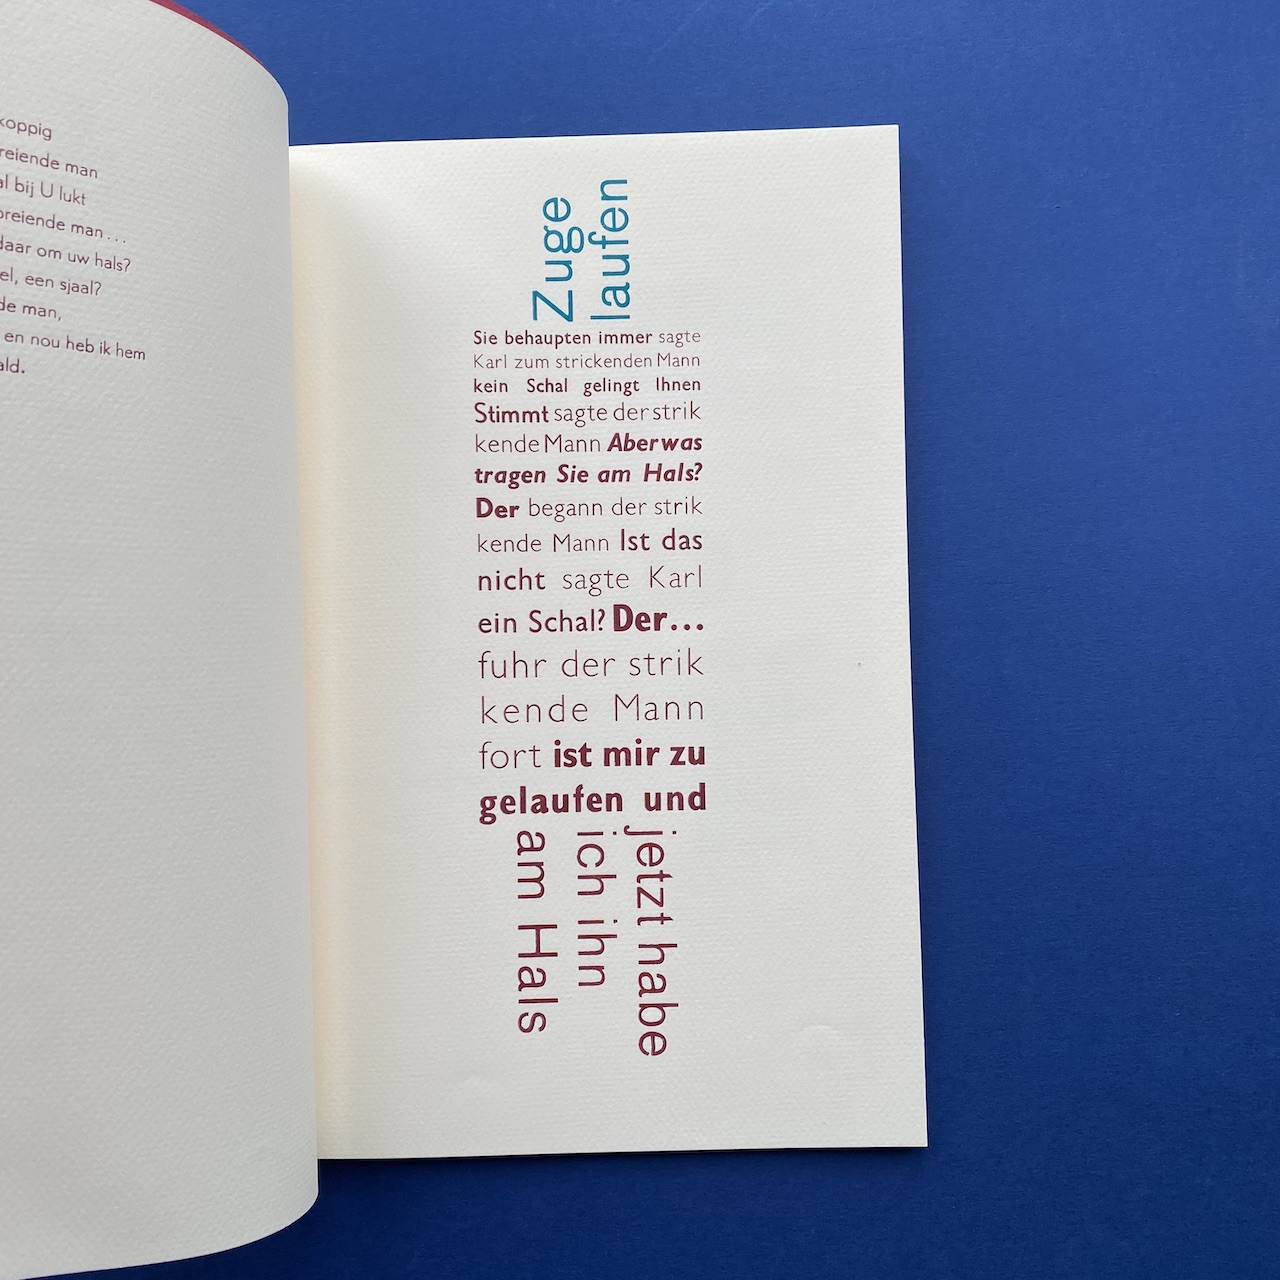 koppig
man
al bij U lukt
breiende man...
daar om uw hals?
een sjaal?
de man,
en nou heb ik hem
Zuge
laufen
Sie behaupten immer sagte
Karl zum strickenden Mann
kein Schal gelingt Ihnen
Stimmt sagte der strik
kende Mann Aber was
tragen Sie am Hals?
Der begann der strik
kende Mann Ist das
nicht sagte Karl
ein Schal? Der...
fuhr der strik
kende Mann
fort ist mir zu
gelaufen und
jetzt habe
ich ihn
am Hals